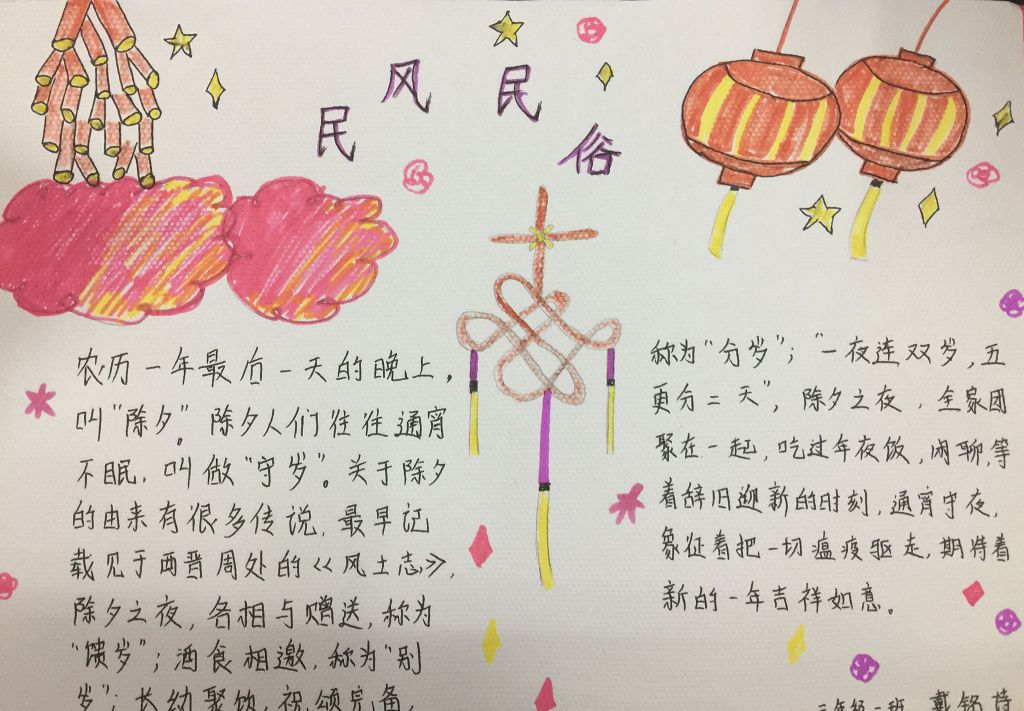 民风民俗
农历一年最后一天的晚上，
叫“除夕”。除夕人们往往通宵
不眠，叫做“守岁”。关于除夕
的由来有很多传说，最早记
载见于西晋周处的《风土志》，
除夕之夜，各相与赠送，称为
“馈岁”；酒食相邀，称为“别
岁”；长幼聚饮，祝颂完备，
称为“分岁”；“一夜连双岁，五
更分二天”，除夕之夜，全家团
聚在一起，吃过年夜饭，闲聊，等
着辞旧迎新的时刻，通宵守夜，
象征着把一切瘟疫驱走，期待着
新的一年吉祥如意。
年级一班 戴铭